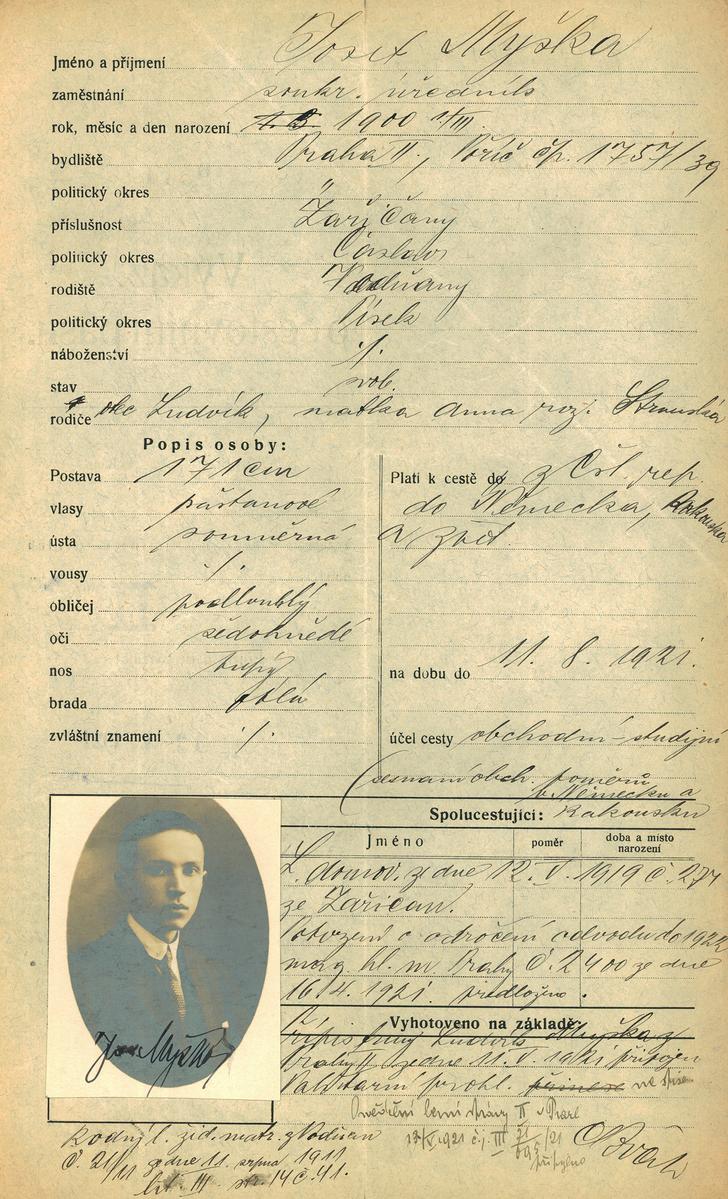 Jméno a příjmení Josef Myška
zaměstnání soukr. úředník
rok, měsíc a den narození 1900 1/III
bydliště Praha II, Poříč čp. 1757/39
politický okres "
příslušnost Žaříčany
politický okres Čáslav
rodiště Vodňany
politický okres Písek
náboženství ./.
stav svob.
rodiče otec Ludvík, matka Anna roz. Stránská
Popis osoby:
Postava 171 cm
vlasy kaštanové
ústa souměrná
vousy ./.
obličej podlouhlý
oči šedohnědé
nos tupý
brada holá
zvláštní znamení ./.
Platí k cestě do z Čsl. rep.
do Německa, Rakouska
a zpět.
na dobu do 11. 8. 1921.
účel cesty obchodní-studijní
(seznání obch. poměrů
v Německu a
Spolucestující: Rakousku
Jméno poměr doba a místo narození
L. domov. ze dne 12. V. 1919 č. 274
ze Zaříčan.
Potvrzení o odročení odvodu do 1922
mag. hl. m. Prahy č. 2400 ze dne
16. 4. 1921. předloženo.
Vyhotoveno na základě:
Přípis firmy Ludvík Myška z
Prahy II ze dne 11. V. 1921 připojen
Valutární prohl. přinese ve spise
Osvědčení berní správy II v Praze
1921 č.j. III /21
připojeno
Josef Myška
Rodný l. žid. matr. z Vodňan
č. 21/11 ze dne 11. srpna 1911
lit. III. str. 14 č. 41.